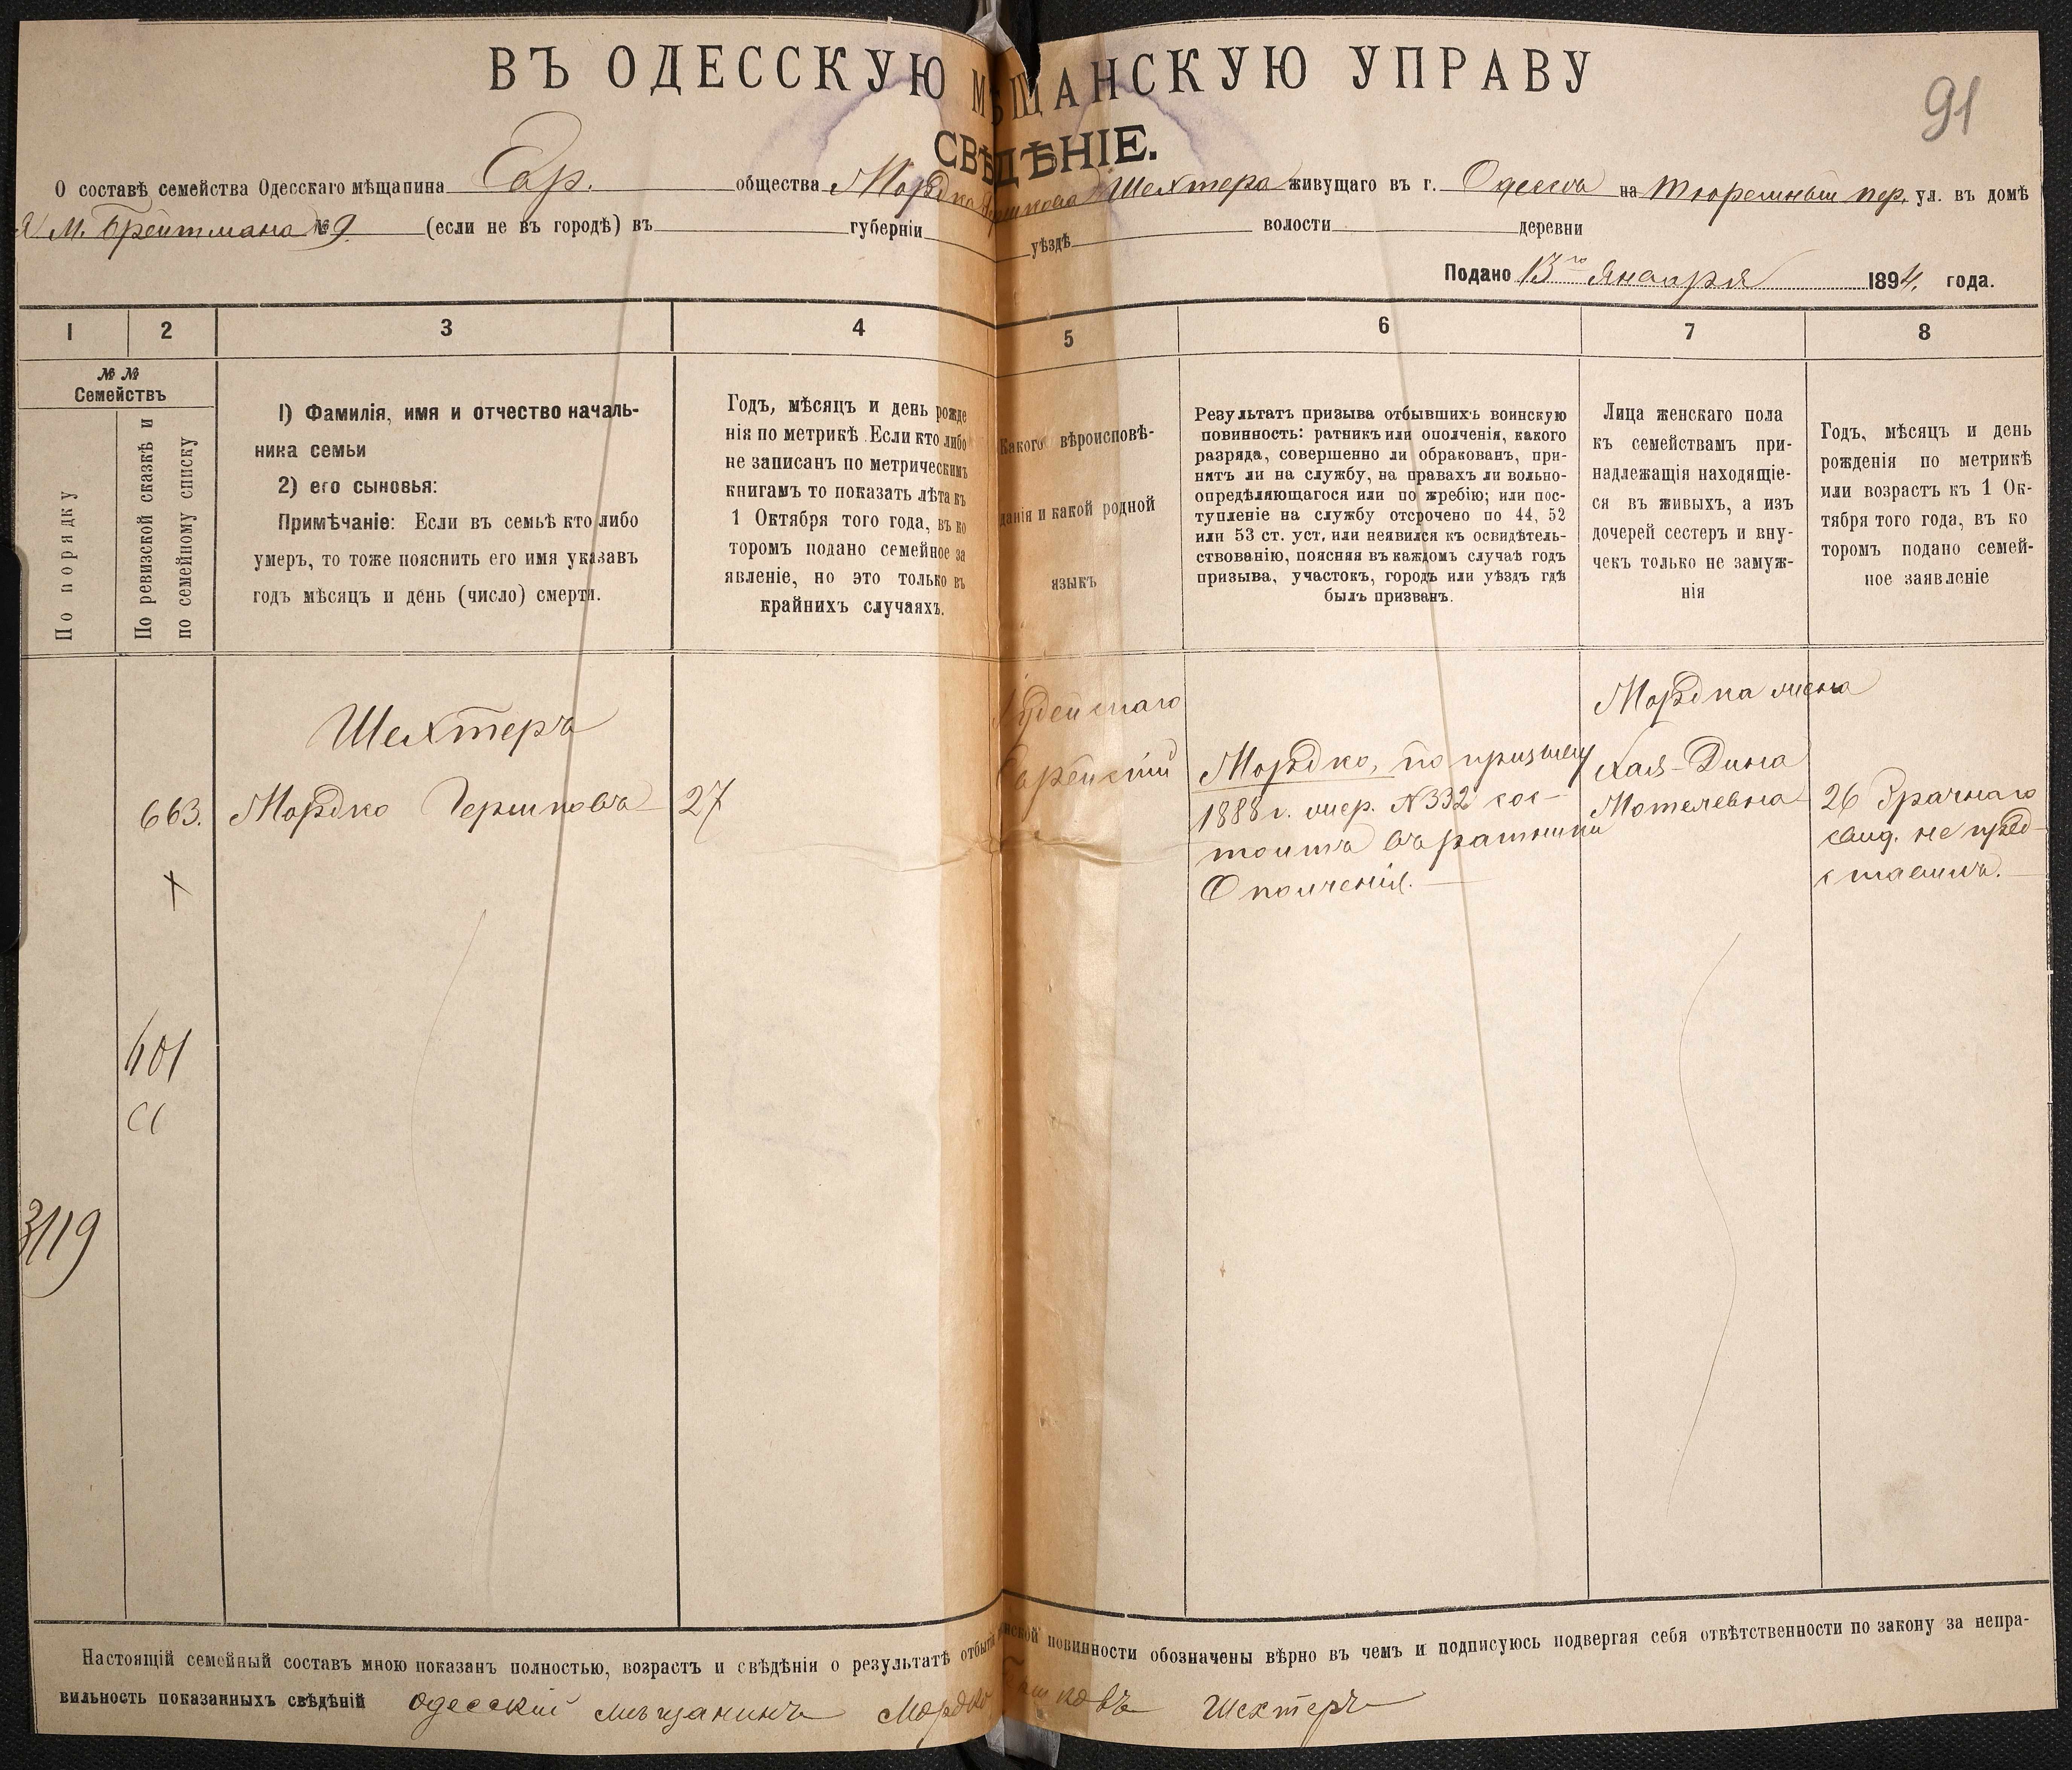 ВЪ ОДЕССКУЮ МѢЩАНСКУЮ УПРАВУ
91
СВѢДѢНІЕ.
О составѣ семейства Одесскаго мѣщанина Евр. общества Мордко Гершкова Шехтера живущаго въ г. Одесса на Тюремный пер. ул. въ домѣ
М. Брейтмана № 9. (если не въ городѣ) въ губерніи уѣздѣ волости деревни
Подано 13го Января 1894. года.
1 2 3 4 5 6 7 8
№ № Семействъ
По порядку
По ревизской сказкѣ и
по семейному списку
1) Фамилія, имя и отчество началь-
ника семьи
2) его сыновья:
Примѣчаніе: Если въ семьѣ кто либо
умеръ, то тоже пояснить его имя указавъ
годъ мѣсяцъ и день (число) смерти.
Годъ, мѣсяцъ и день рожде
нія по метрикѣ. Если кто либо
не записанъ по метрическимъ
книгамъ то показать лѣта къ
1 Октября того года, въ ко
торомъ подано семейное за
явленіе, но это только въ
крайнихъ случаяхъ.
Какого вѣроисповѣ-
данія и какой родной
языкъ
Результатъ призыва отбывшихъ воинскую
повинность: ратникъ или ополченія, какого
разряда, совершенно ли обракованъ, при-
нятъ ли на службу, на правахъ ли вольно-
опредѣляющагося или по жребію; или пос-
тупленіе на службу отсрочено по 44, 52
или 53 ст. уст. или неявился къ освидѣтель-
ствованію, поясняя въ каждомъ случаѣ годъ
призыва, участокъ, городъ или уѣздъ гдѣ
былъ призванъ.
Лица женскаго пола
къ семействамъ при-
надлежащія находящіе-
ся въ живыхъ, а изъ
дочерей сестеръ и вну-
чекъ только не замуж-
нія
Годъ, мѣсяцъ и день
рожденія по метрикѣ
или возрастъ къ 1 Ок-
тября того года, въ ко
торомъ подано семей-
ное заявленіе
Шехтеръ
663. Мордко Гершковъ 27
Іудейскаго
Еврейскій
Мордко, по призыву
1888 г. жер. № 332 сос-
тоитъ въ ратники
Ополченія.
Мордка жена
Хая-Дина
Мотелевна
26 Брачнаго
свид. не пред-
ставилъ.
401
3119
Настоящій семейный составъ мною показанъ полностью, возрастъ и свѣдѣнія о результатѣ отбытія воинской повинности обозначены вѣрно въ чемъ и подписуюсь подвергая себя отвѣтственности по закону за непра-
вильность показанныхъ свѣдѣній одесскій мѣщанинъ Мордко Гершковъ Шехтеръ